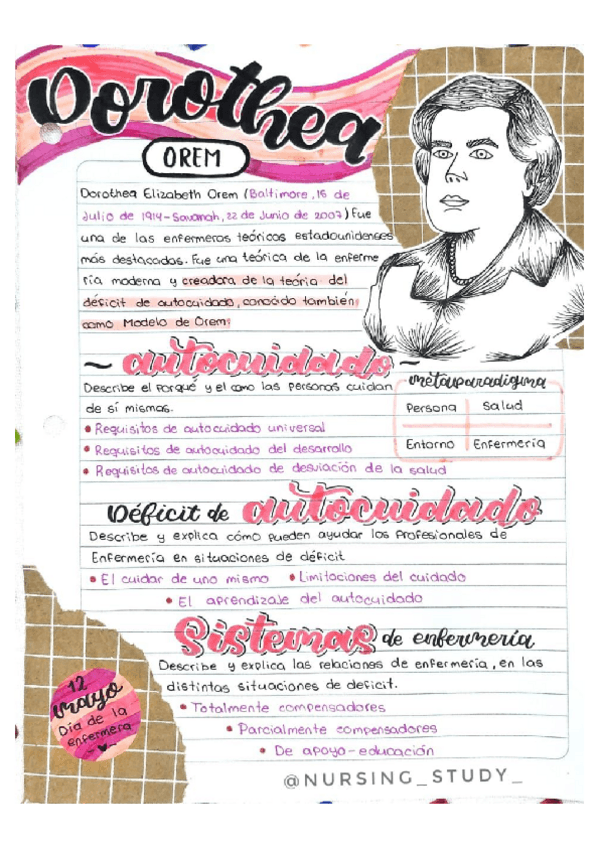 Dorothea
OREM
Dorothea Elizabeth Orem (Baltimore, 15 de
Julio de 1914-Savanah, 22 de Junio de 2007) Fue
una de las enfermeros teóricos estadounidenses
más destacadas. Fue una teórica de la enferme
ría moderna y creadora de la teoría del
déficit de autocuidado, conocido también
como Modelo de Orem.
~ autocuidado ~
Describe el porqué y el como las personas cuidan
de sí mismas.
• Requisitos de autocuidado universal
• Requisitos de autocuidado del desarrollo
• Requisitos de autocuidado de desviación de la salud
metaparadigma
Persona Salud
Entorno Enfermería
Déficit de autocuidado
Describe y explica cómo pueden ayudar los Profesionales de
Enfermería en situaciones de déficit
• El cuidar de uno mismo • Limitaciones del cuidado
• El aprendizaje del autocuidado
Sistemas de enfermería
Describe y explica las relaciones de enfermería, en las
distintas situaciones de deficit.
• Totalmente compensadores
• Parcialmente compensadores
• De apoyo-educación
12
mayo
Día de la
enfermera
@NURSING_STUDY_